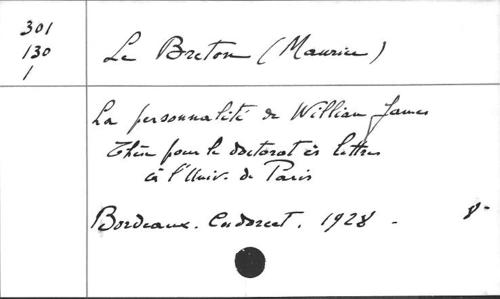 301
130
1
Le Breton (Maurice)
La personnalité de William James
Thèse pour le doctorat ès lettres
à l'Univ. de Paris
Bordeaux. Condorcet. 1928 - 8-